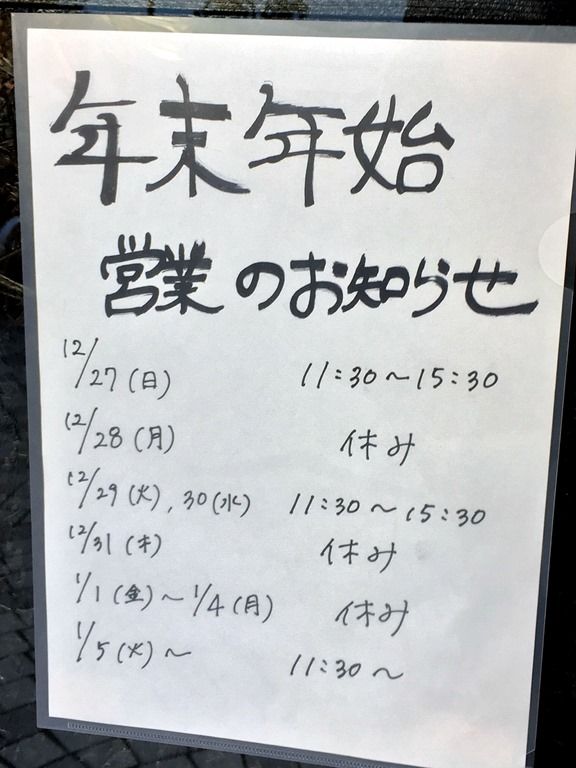 年末年始
営業のお知らせ
12/27(日) 11:30～15:30
12/28(月) 休み
12/29(火), 30(水) 11:30～15:30
12/31(木) 休み
1/1(金)～1/4(月) 休み
1/5(火)～ 11:30～